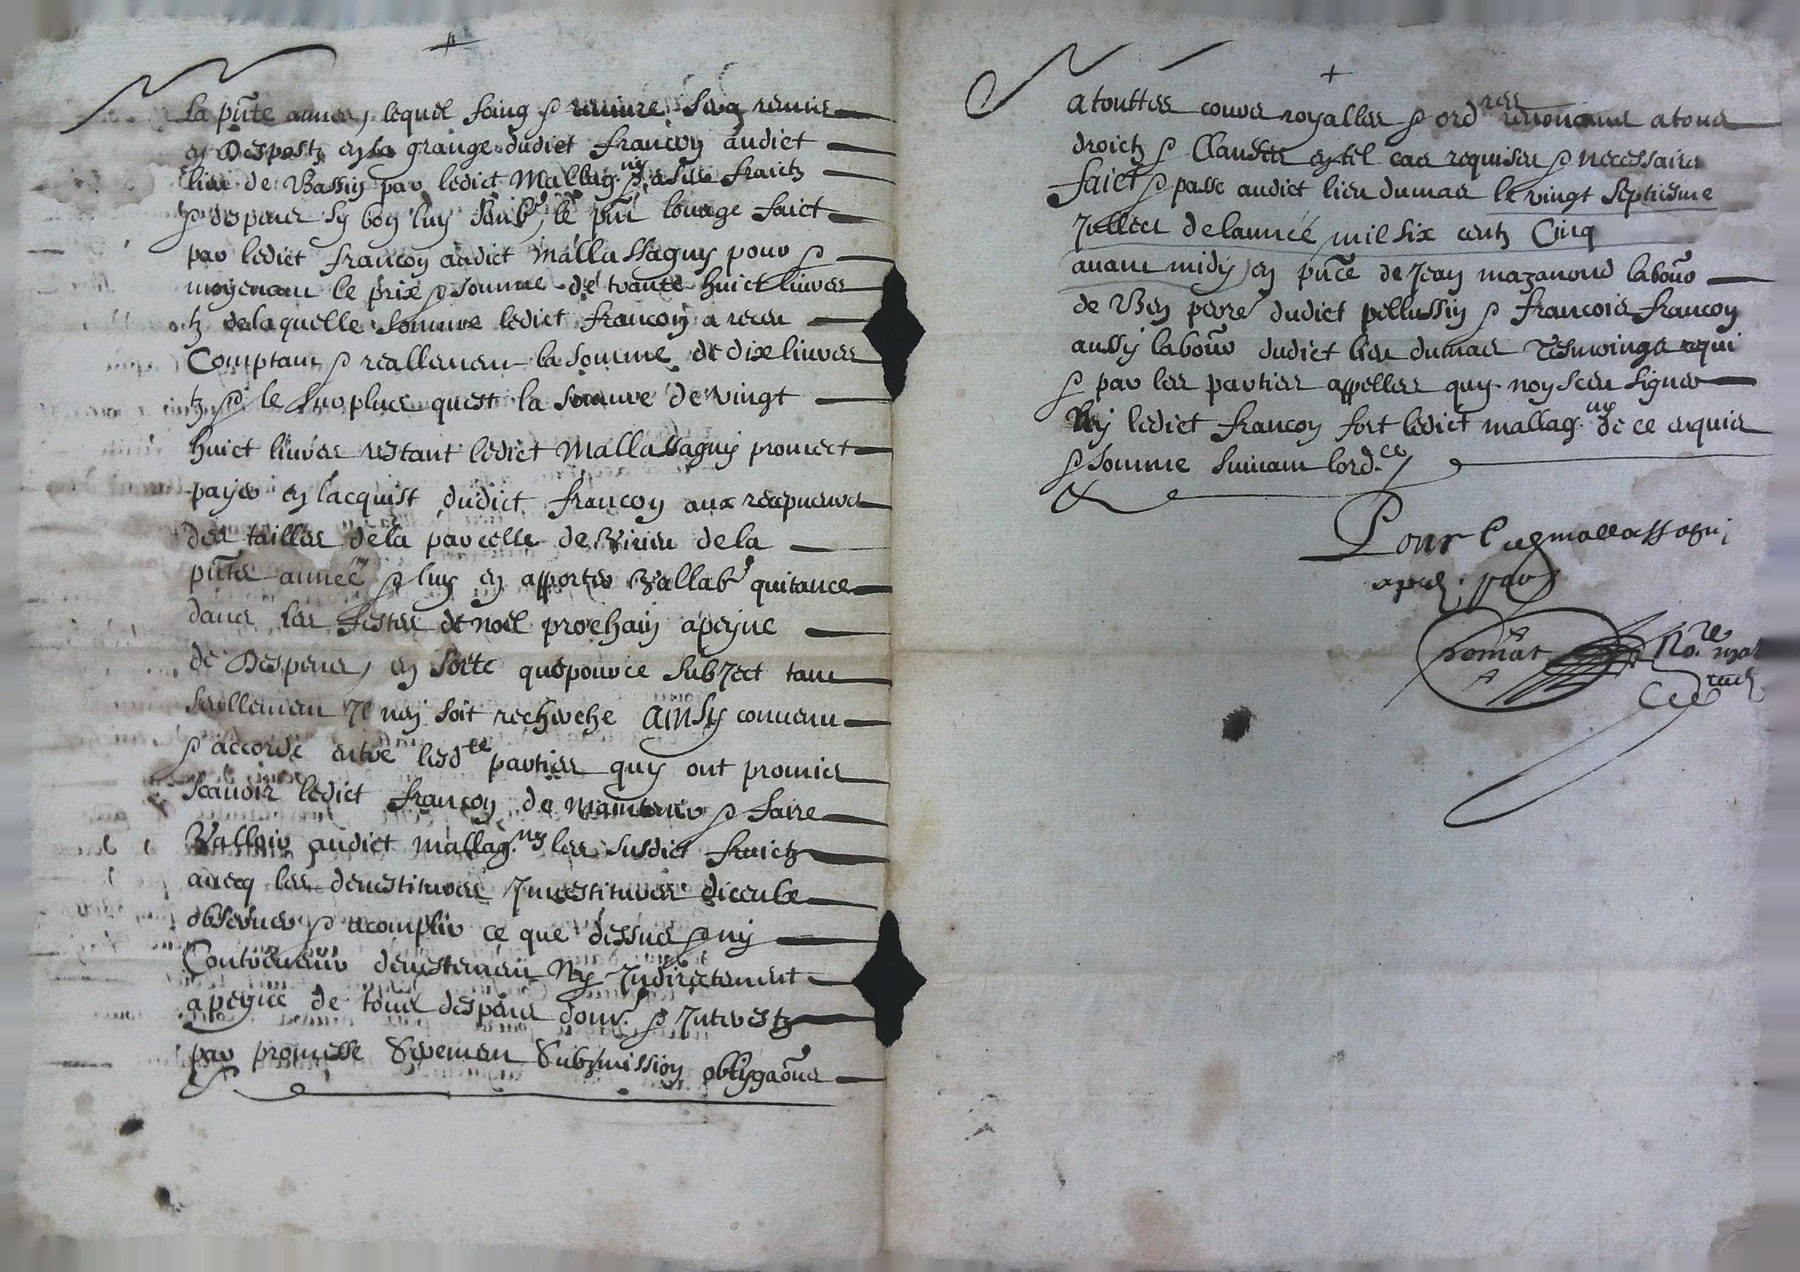 la pñte annee, lequel foing & sera remis
en despost en la grange dudict françon audict
lieu de Vassin par ledict Mallag.ny a ses fraictz
& despans sy bon luy semble le pñt louage faict
par ledict françon audict Mallassagny pour &
moyenant le prix & somme de trante huict livres
tz de laquelle somme ledict françon a receu
Comptant & reallemen la somme de dix livres
tz & le surplus quest la somme de vingt
huict livres restant ledict Mallassagny promect
payer en lacquist dudict françon aux recepveurs
des tailles de la parcelle de Virieu de la
pñte année & luy en apporter vallab. quitance
dans les festes de noel prochain a peyne
de despens, en sorte que pour ce subject tant
seullemen Il ney soit recherche ainsy convenu
& accorde entre lesd.tes parties quy ont promis
scavoir ledict françon de maintenir & faire
Valloir audict mallag.ny les susdict fraictz
avecq les devestitures Investitures diceulx
observer & acomplir ce que dessus & ny
Contrevenir directemen Ny Indirectement
a peyne de tous despans dom. & Interestz
par promesse seremen submission obligaõns
a touttes cours royalles & ord.res renoncans a tous
droictz & Clauses en tel cas requises & necessaires
faict & passe audict lieu dumas le vingt septiesme
Juillect de lannée mil six centz Cinq
avant midy en pñce de Jean mazanod laboũr
de dudict pellussin & francois françon
aussy labour dudict lieu dumas tesmoings requis
& par les parties appelles quy noy sceu signer
Ny ledict françon fort ledict mallag.ny de ce enquis
& somme suivant lord.ce
Pour Mallassagni
par
romat No.re